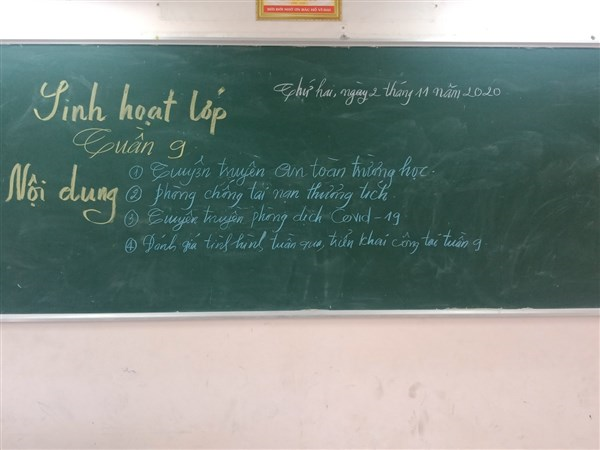 Thứ hai, ngày 2 tháng 11 năm 2020
Sinh hoạt lớp
Tuần 9
Nội dung
① Tuyên truyền an toàn trường học.
② Phòng chống tai nạn thương tích.
③ Tuyên truyền phòng dịch Covid-19
④ Đánh giá tình hình tuần qua, triển khai công tác tuần 9